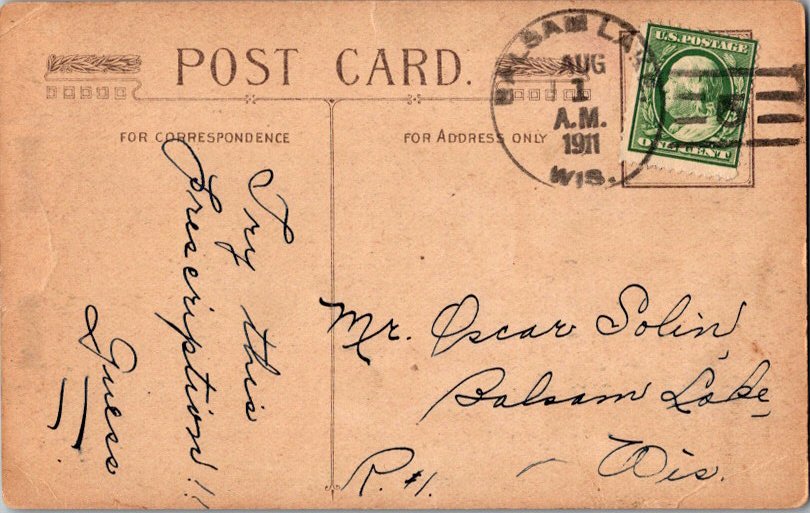 POST CARD.
FOR CORRESPONDENCE
FOR ADDRESS ONLY
BALSAM LAKE
AUG
1
A.M.
1911
WIS.
U.S. POSTAGE
ONE CENT
Try this
Prescription!!
Guess
Mr. Oscar Solin,
Balsam Lake,
Wis.
R. #1.